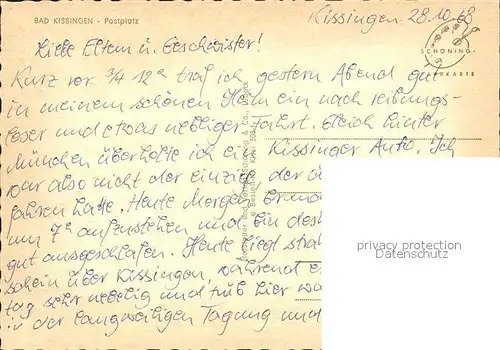 BAD KISSINGEN - Postplatz
Kissingen 28.10.68
SCHÖNING-
KARTE
Liebe Eltern u. Geschwister!
Kurz vor 3/4 12h traf ich gestern Abend gut
in meinem schönen Heim ein nach reibungs-
loser und etwas nebliger Fahrt. Gleich hinter
München überholte ich ein Kissinger Auto. Ich
war also nicht der einzige, der
fahren hatte. Heute Morgen
um 7h aufzustehen und bin
gut ausgeschlafen. Heute liegt
schein über Kissingen, während
tag sehr neblig und trüb hier
der langweiligen Tagung und
privacy protection
Datenschutz